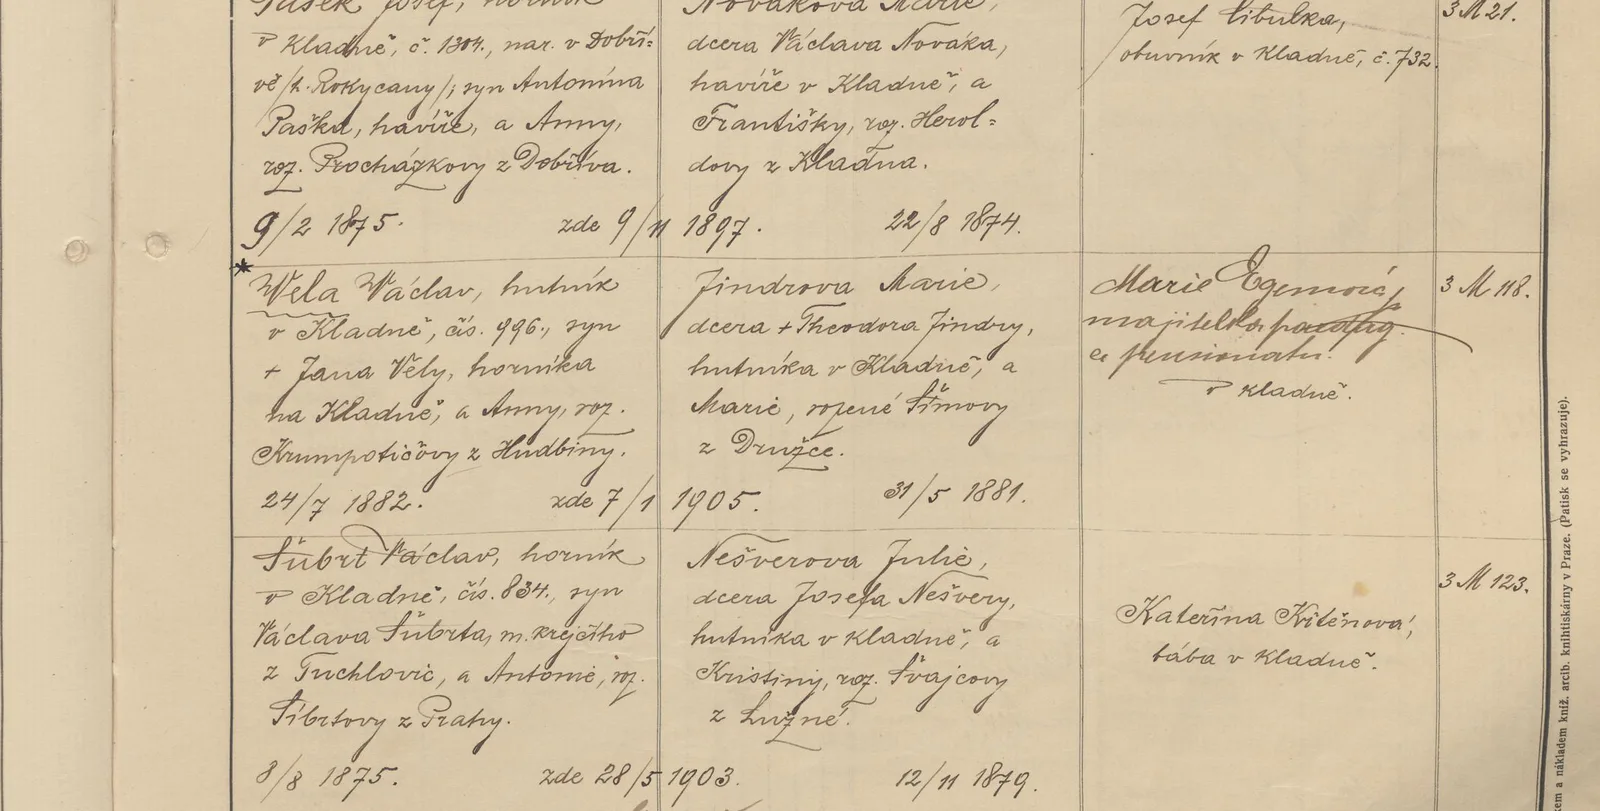 Pašek Josef, horník
v Kladně, č. 1304., nar. v Dobří=
vě /h. Rokycany/; syn Antonína
Paška, havíře, a Anny,
roz. Procházkovy z Dobříva.
9/2 1875. zde 9/11 1897.
Nováková Marie,
dcera Václava Nováka,
havíře v Kladně, a
Františky, roz. Herol=
dovy z Kladna.
22/8 1874.
Josef Cibulka,
obuvník v Kladně, č. 732.
3 M 21.
* Wela Václav, hutník
v Kladně, čís. 996., syn
+ Jana Vely, horníka
na Kladně, a Anny, roz.
Krumpotičovy z Hudbiny.
24/7 1882. zde 7/1 1905.
Jindrova Marie,
dcera + Theodora Jindry,
hutníka v Kladně, a
Marie, rozené Šímovy
z Družce.
31/5 1881.
Marie
majitelka
pensionatu.
v Kladně.
3 M 118.
Šubrt Václav, horník
v Kladně, čís. 834., syn
Václava Šubrta, m. krejčího
z Tuchlovic, a Antonie, roz.
Šibrtovy z Prahy.
8/8 1875. zde 28/5 1903.
Nešverova Julie,
dcera Josefa Nešvery,
hutníka v Kladně, a
Kristiny, roz. Švajcovy
z Lužné.
12/11 1879.
Kateřina Kitěnová,
bába v Kladně.
3 M 123.
nákladem kniž. arcib. knihtiskárny v Praze. (Patisk se vyhrazuje).